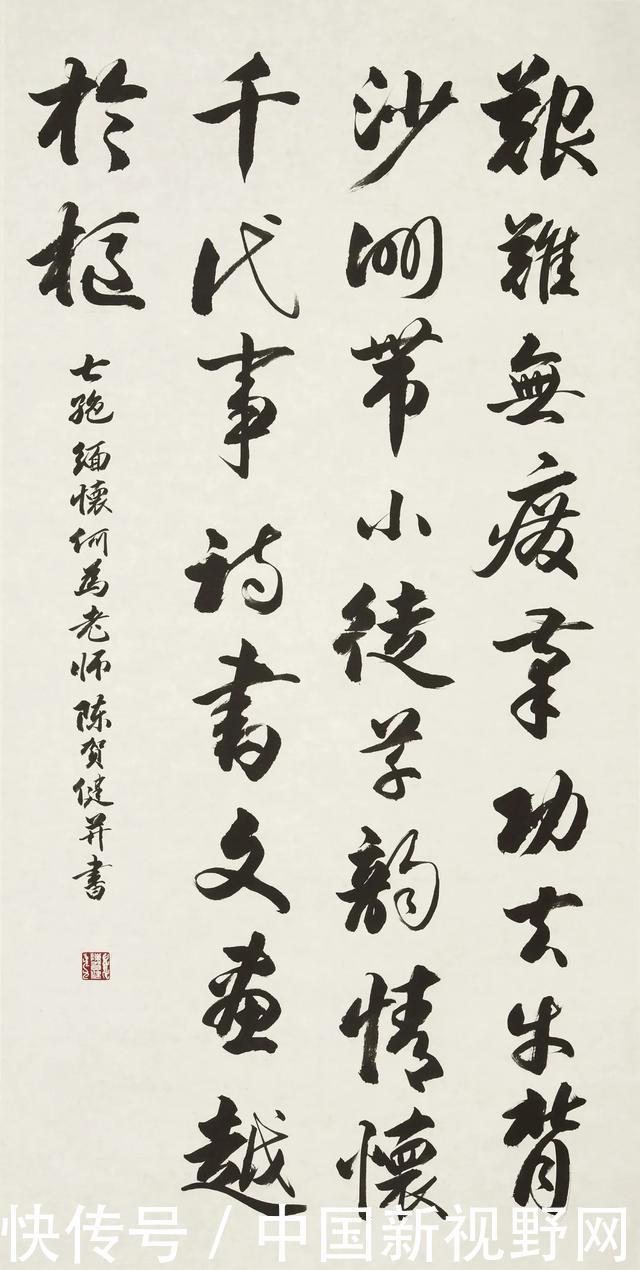 艱難無廢業功夫牛背
沙洲帶小徒字韻情懷
千代事诗書文畫越
於
七絶緬懷何為老师陈贺健并書
快传号 / 中国新视野网